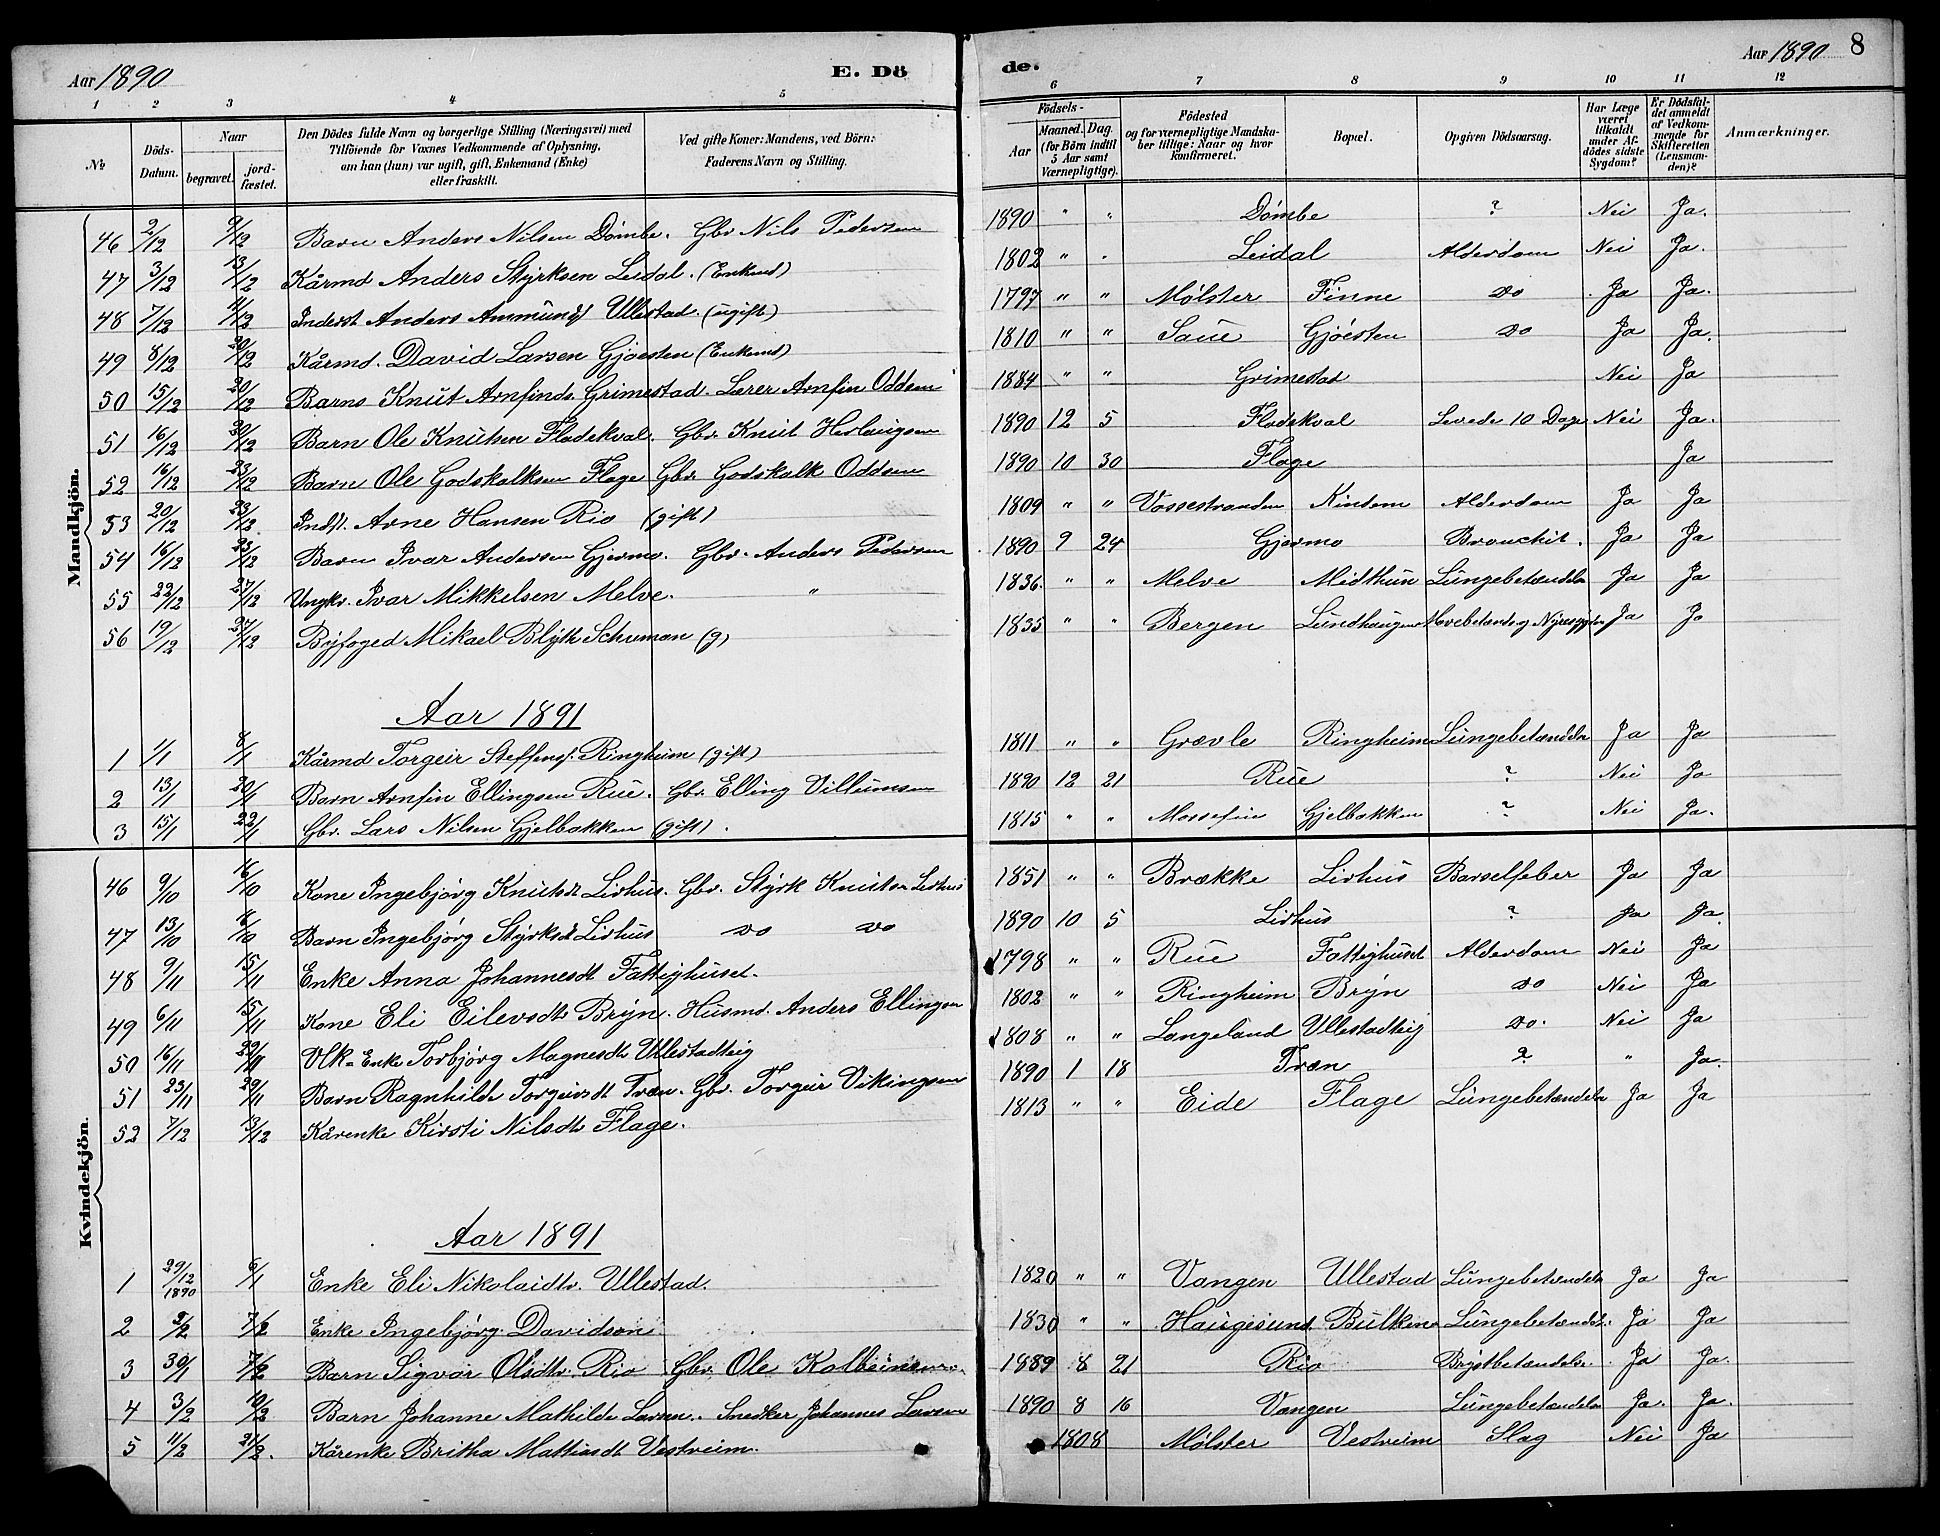 Aar 1890
E. Dö
de.
Aar 1890 8
1 2 3 4 5 6 7 8 9 10 11 12
№
Döds-Datum.
Naar
begravet.
jord-fæstet.
Den Dödes fulde Navn og borgerlige Stilling (Næringsvei) med
Tilföiende for Voxnes Vedkommende af Oplysning,
om han (hun) var ugift, gift, Enkemand (Enke)
eller fraskilt.
Ved gifte Koner: Mandens, ved Börn:
Faderens Navn og Stilling.
Födsels-
Aar
Maaned. Dag.
(for Börn indtil
5 Aar samt
Værnepligtige).
Födested
og for værnepligtige Mandska-
ber tillige: Naar og hvor
konfirmeret.
Bopæl.
Opgiven Dödsaarsag.
Har Læge
været
tilkaldt
under Af-
dödes sidste
Sygdom?
Er Dödsfal-
det anmeldt
af Vedkom-
mende for
Skifteretten
(Lensman-
den)?
Anmærkninger.
Mandkjön.
46 2/12 9/12 Barn Anders Nilsen Dømbe. Gbr Nils Pedersen 1890 " " Dømbe ? Nei Ja.
47 3/12 13/12 Kårmd Anders Styrksen Leidal. (Enkmd) 1802 " " Leidal Alderdom Nei Ja.
48 7/12 11/12 Inderst Anders Ammunds Ullestad. (ugift) 1797 " " Mølster Finne do Ja Ja.
49 8/12 20/12 Kårmd. David Larsen Gjøesten (Enkmd) 1810 " " Saue Gjøesten do Ja Ja.
50 15/12 20/12 Barns Knut Arnfinds. Grimestad. Lærer Arnfin Oddsen 1884 " " Grimestad Nei Ja
51 16/12 20/12 Barn Ole Knutsen Fladekval. Gbr. Knut Herlaugsen 1890 12 5 Fladekval Levede 10 Dage Nei Ja.
52 16/12 23/12 Barn Ole Godskalksen Flage Gbr. Godskalk Oddsen 1890 10 30 Flage Ja
53 20/12 23/12 Indst. Arne Hansen Rio (gift) 1809 " " Vossestranden Kindem Alderdom Ja Ja
54 16/12 23/12 Barn Ivar Andersen Gjermo. Gbr. Anders Pedersen 1890 9 24 Gjermo Bronchit. Ja Ja
55 22/12 27/12 Ungkr. Ivar Mikkelsen Melve. " 1836. " " Melve Midthun Lungebetændelse Ja Ja
56 19/12 27/12 Byfoged Mikael Blytt Schuman (g) 1835 " " Bergen Lundhaugen Mavebetænd. og Nyresygdom Ja Ja
Aar 1891
1 1/1 8/1 Kårmd Torgeir Steffens. Ringheim (gift) 1811 " " Grævle Ringheim Lungebetændelse Ja Ja
2 13/1 20/1 Barn Arnfin Ellingsen Rue. Gbr. Elling Villumsen 1890 12 21 Rue ? Nei Ja
3 15/1 22/1 Gbr. Lars Nilsen Gjelbakken (gift). 1815 " " Mossefin Gjelbakken ? Nei Ja.
Kvindekjön.
46 9/10 16/10 Kone Ingebjørg Knutsdt. Lirhus. Gbr. Styrk Knutsen Lirhus 1851 " " Brække Lirhus Barselfeber Ja Ja
47 13/10 16/10 Barn Ingebjørg Styrksdt. Lirhus do do 1890 10 5 Lirhus ? Ja Ja.
48 9/11 15/11 Enke Anna Johannesdt Fattighuset. 1798 " " Rue Fattighuset Alderdom Nei Ja
49 6/11 15/11 Kone Eli Eilevsdtr Bryn. Husmd. Anders Ellingsen 1802 " " Ringheim Bryn do Nei Ja
50 16/11 29/11 Vlk= Enke Torbjørg Magnesdtr Ullestadteig 1808 " " Langeland Ullestadteig do. Nei Ja
51 23/11 29/11 Barn Ragnhilde Torgeirsdt Træn. Gbr. Torgeir Vikingsen 1890 1 18 Træn ? " Ja.
52 7/12 13/12 Kårenke Kirsti Nilsdtr Flage. 1813 " " Eide Flage Lungebetændelse Ja Ja
Aar 1891
1 29/12 1890 6/1 Enke Eli Nikolaidtr. Ullestad. 1820 " " Vangen Ullestad Lungebetændelse Ja Ja
2 2/2 7/2 Enke Ingebjørg Davidson. 1830 " " Haugesund Bulken Lungebetændelse. Ja Ja
3 30/1 7/2 Barn Sigvor Olsdtr. Rio Gbr. Ole Kolbeinsen 1889 8 21 Rio Brystbetændelse. Ja Ja.
4 3/2 10/2 Barn Johanne Mathilde Larsen. Snedker Johannes Larsen 1890 8 16 Vangen Lungebetændelse Ja. Ja.
5 11/2 21/2. Kårenke Britha Mattiasdt Vestreim. 1808 Mølster Vestreim Slag Nei Ja